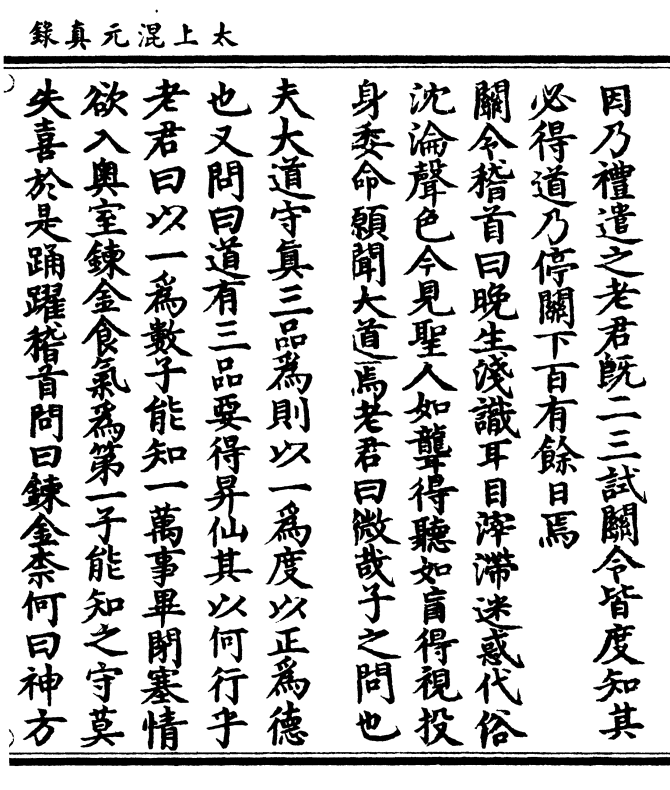 太上混元真錄
因乃禮遣之老君旣二三試關令皆度知其
必得道乃停關下百有餘日焉
關令稽首曰晚生淺識耳目滓滯迷惑代俗
沈淪聲色今見聖人如聾得聽如盲得視投
身委命願聞大道焉老君曰微哉子之問也
夫大道守真三品爲則以一爲度以正爲德
也又問曰道有三品要得昇仙其以何行乎
老君曰以一爲數子能知一萬事畢閉塞情
欲入奧室鍊金食氣爲第一子能知之守莫
失喜於是踊躍稽首問曰鍊金柰何曰神方